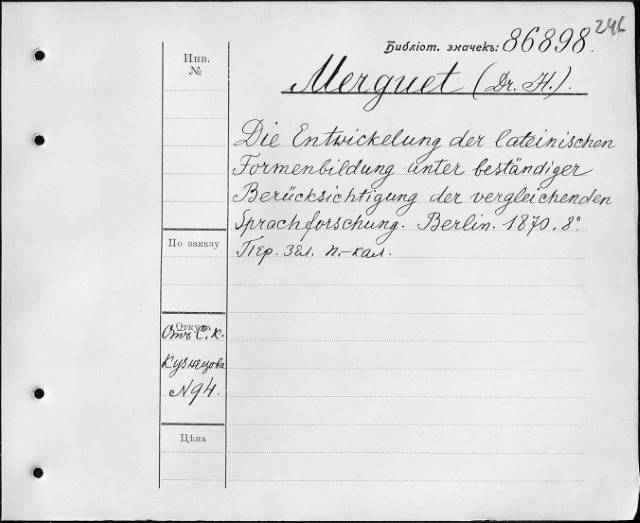 246
Библіот. значекъ: 86898.
Инв.
№
Merguet (Dr. H.).
Die Entwickelung der lateinischen
Formenbildung unter beständiger
Berücksichtigung der vergleichenden
Sprachforschung. Berlin. 1870. 8°.
Пер. зел. п.-кал.
По заказу
Откуда
Отъ С. К.
Кузнецова
N94.
Цѣна